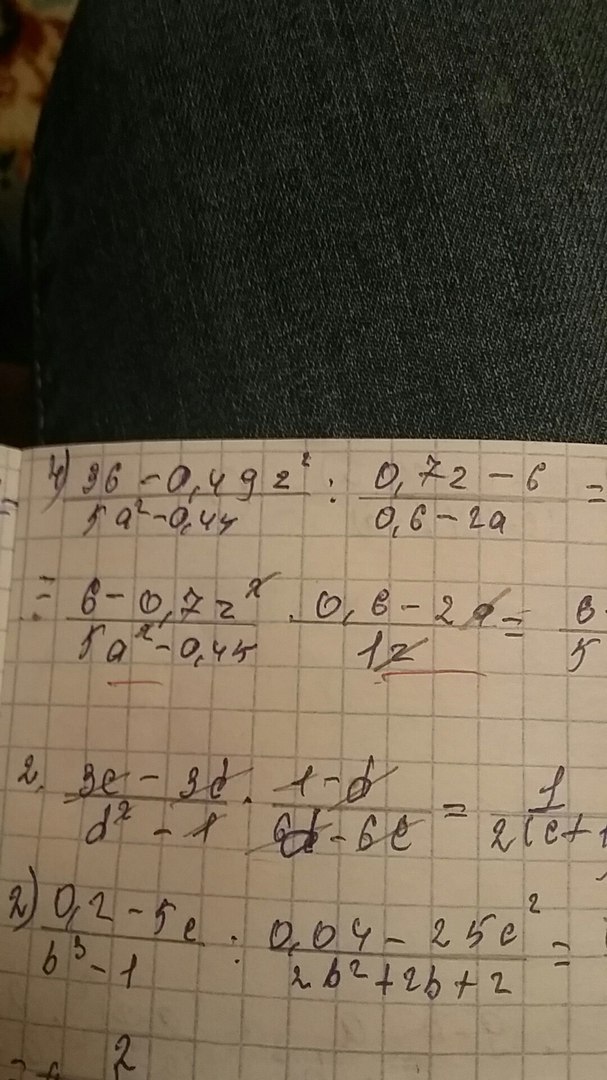 4) (36 - 0,49z²)/(5a² - 0,45) : (0,7z - 6)/(0,6 - 2a) =
= (6 - 0,7z²)/(5a² - 0,45) · (0,6 - 2a)/(1z) = 6/5
2. (3c - 3d)/(d² - 1) · (1 - d)/(6d - 6c) = 1/2(c+1
2) (0,2 - 5c)/(b³ - 1) : (0,04 - 25c²)/(2b² + 2b + 2) =
2